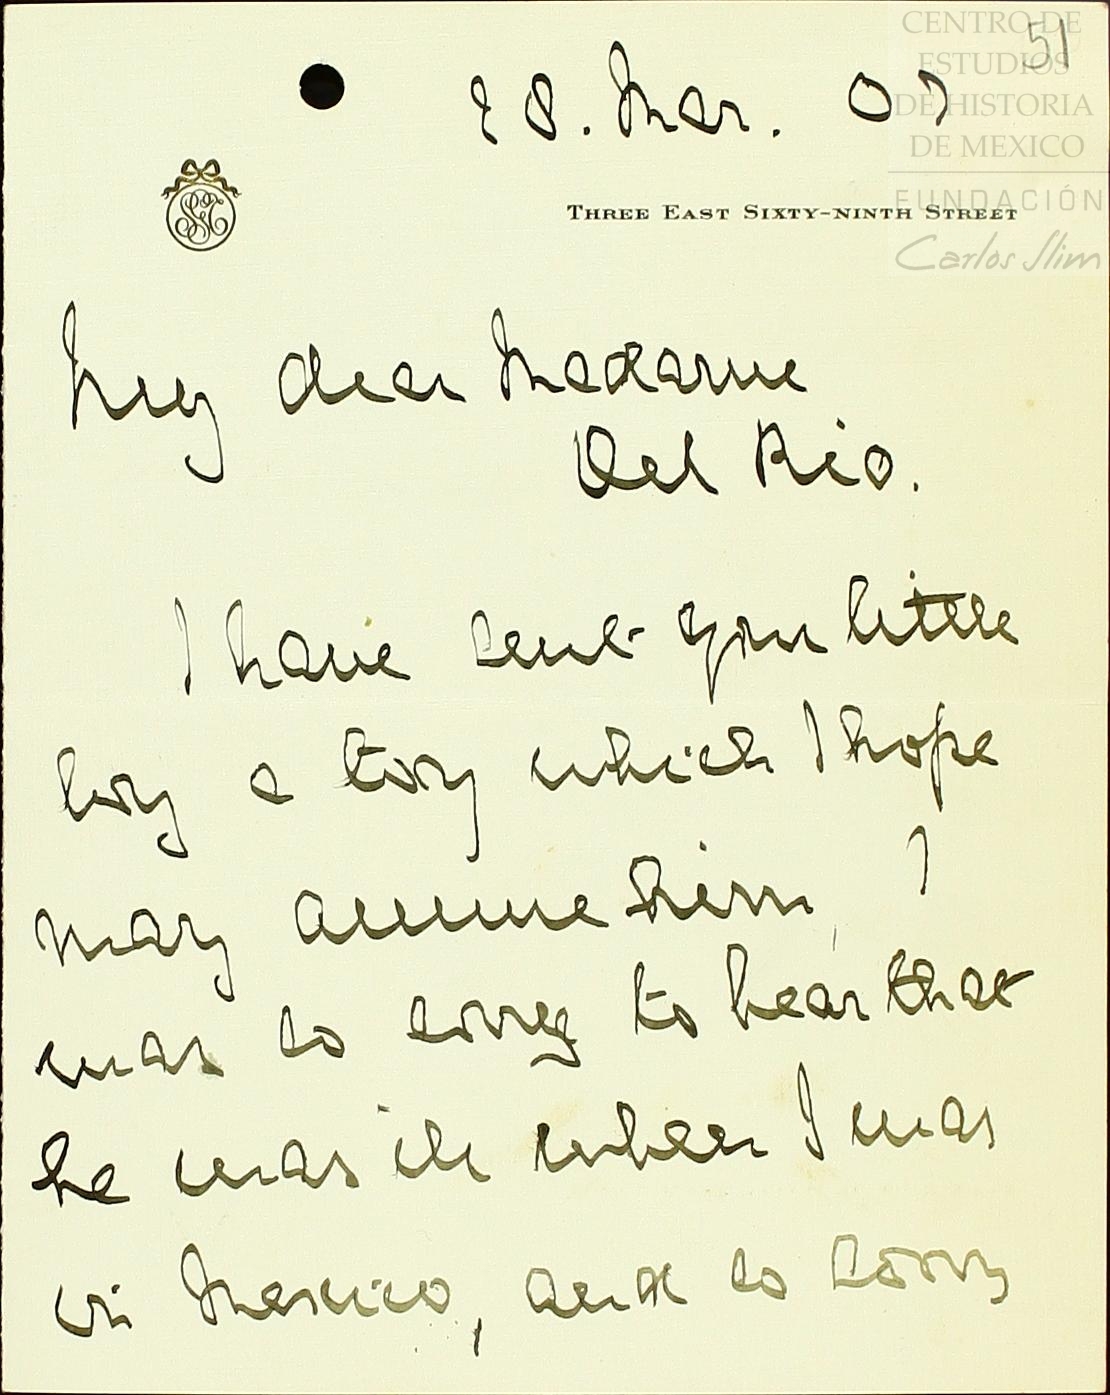 51
28. Mar. 07
THREE EAST SIXTY-NINTH STREET
CENTRO DE
ESTUDIOS
DE HISTORIA
DE MEXICO
FUNDACIÓN
Carlos Slim
My dear Madame
Del Rio.
I have sent your little
boy a toy which I hope
may amuse him, I
was so sorry to hear that
he was ill when I was
in Mexico, and so sorry